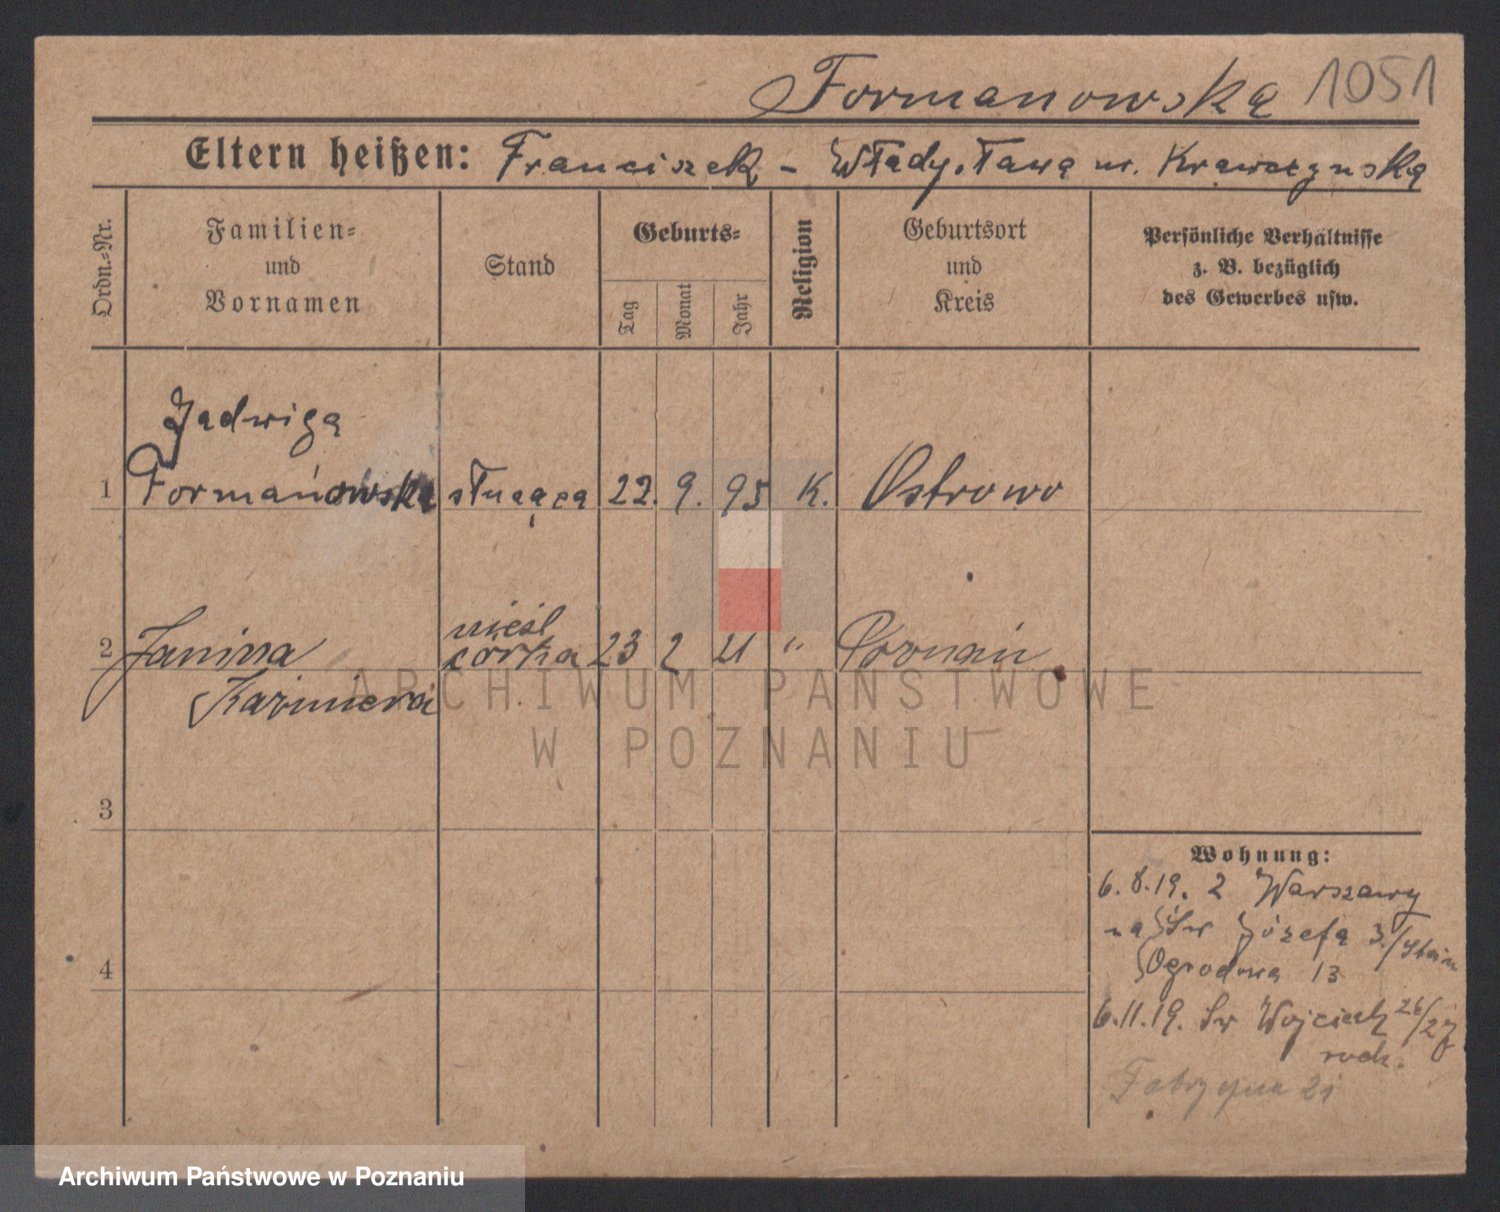 Formanowska 1051
Eltern heißen: Franciszek - Władysława ur. Krawczynska
Ordn.-Nr.
Familien- und Vornamen
Stand
Geburts-
Tag
Monat
Jahr
Religion
Geburtsort und Kreis
Persönliche Verhältnisse z. B. bezüglich des Gewerbes usw.
Jadwiga
1 Formańowska służąca 22. 9. 95 K. Ostrowo
2 Janina córka 23 2 21 " Poznań
Kazimiera
3
4
Wohnung:
6.8.19. z Warszawy
na Św Józefa 3/
Ogrodowa 13
6.11.19. Św Wojciech 26/27
ARCHIWUM PAŃSTWOWE
W POZNANIU
Archiwum Państwowe w Poznaniu